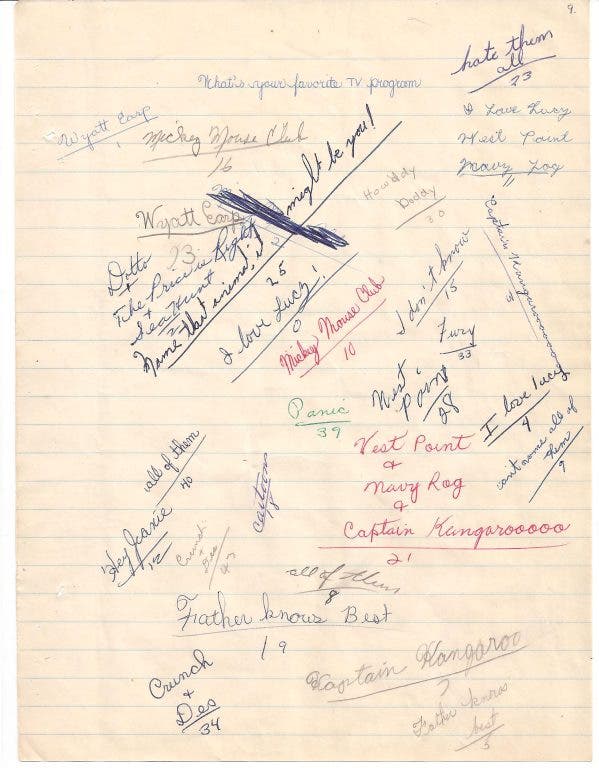 9.
hate them
all
23
What's your favorite TV program
Wyatt Earp
1
Mickey Mouse Club
16
I Love Lucy
West Point
Navy Log
11
Howddy
Doddy
30
Wyatt Earp
23
Captain Kangarooooooo
3
Dotto
+
The Price is Right
+
Sea Hunt
2
Name that animal, it might be you!
25
I love Lucy!
0
I don't know
15
Mickey Mouse Club
10
Fury
33
West
Point
28
I love lucy
4
Panic
39
can't name all of
them
9
Vest Point
&
Navy Rog
&
Captain Kangarooooo
21
all of them
40
cartoons
Hey Jeanie
12
Crunch
+
Des
43
all of them
8
Father knows Best
19
Captain Kangaroo
7
Crunch
+
Des
34
Father knows
best
5